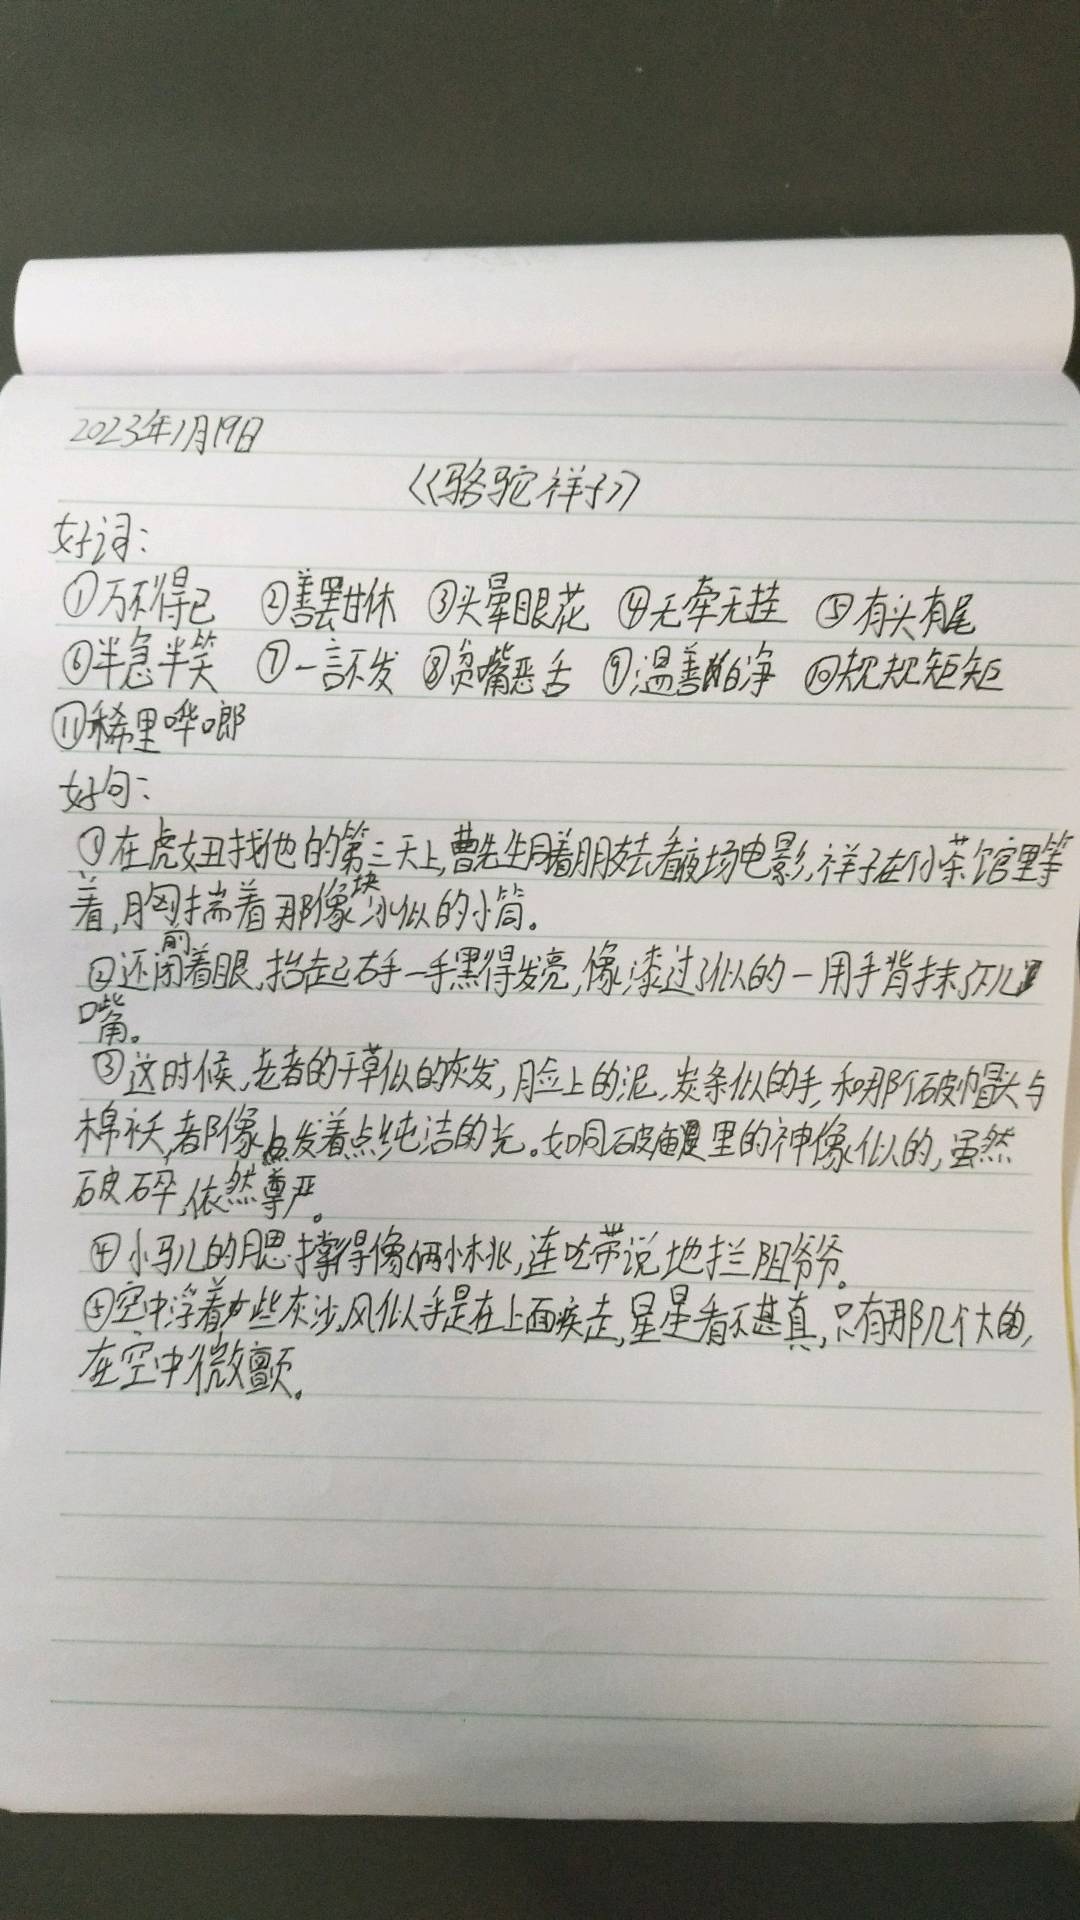 2023年1月19日
《骆驼祥子》
好词：
①万不得已 ②善罢甘休 ③头晕眼花 ④无牵无挂 ⑤有头有尾
⑥半急半笑 ⑦一言不发 ⑧贫嘴恶舌 ⑨温善的净 ⑩规规矩矩
⑪稀里哗啷
好句：
①在虎妞找他的第三天上，曹先生同着朋友去看夜场电影，祥子在个小茶馆里等
着，胸揣着那像块冰似的小筒。
②还闭着眼，抬起己右手—手黑得发亮，像漆过了似的—用手背抹了几
嘴角。
③这时候，老者的干草似的灰发，脸上的泥，炭条似的手，和那个破帽头与
棉袄，都像点发着点纯洁的光。如同破庙里的神像似的，虽然
破碎，依然尊严。
④小马儿的腮撑得像俩小桃，连吃带说地拦阻爷爷。
⑤空中浮着些灰沙，风似乎是在上面疾走，星星看不甚真，只有那几个大的，
在空中微颤。